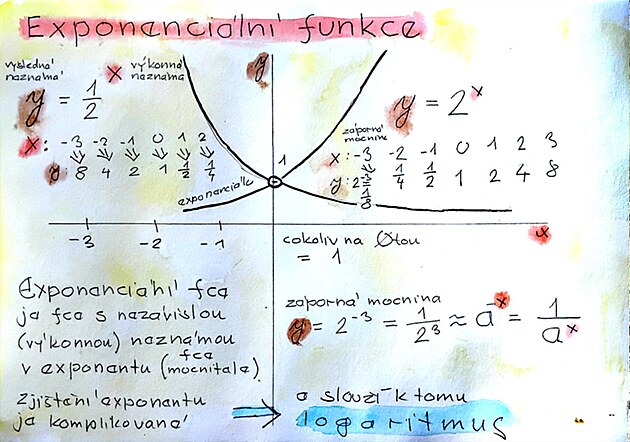 Exponenciální funkce
výsledná neznámá
x výkonná neznámá
y
y = 1/2 x
x: -3 -2 -1 0 1 2
y: 8 4 2 1 1/2 1/4
y = 2^x
záporná mocnina
x: -3 -2 -1 0 1 2 3
y: 2^-3 1/8 1/4 1/2 1 2 4 8
1
exponenciála
-3 -2 -1
x
cokoliv na 0tou
= 1
Exponenciální fca
ja fca s nazávislou
(výkonnou) naznámou
v exponantu (fca mocnitala)
záporná mocnina
y = 2^-3 = 1/2^3 ≈ a^-x = 1/a^x
zjištání exponantu
ja komplikovaná
a slouží k tomu
logaritmus